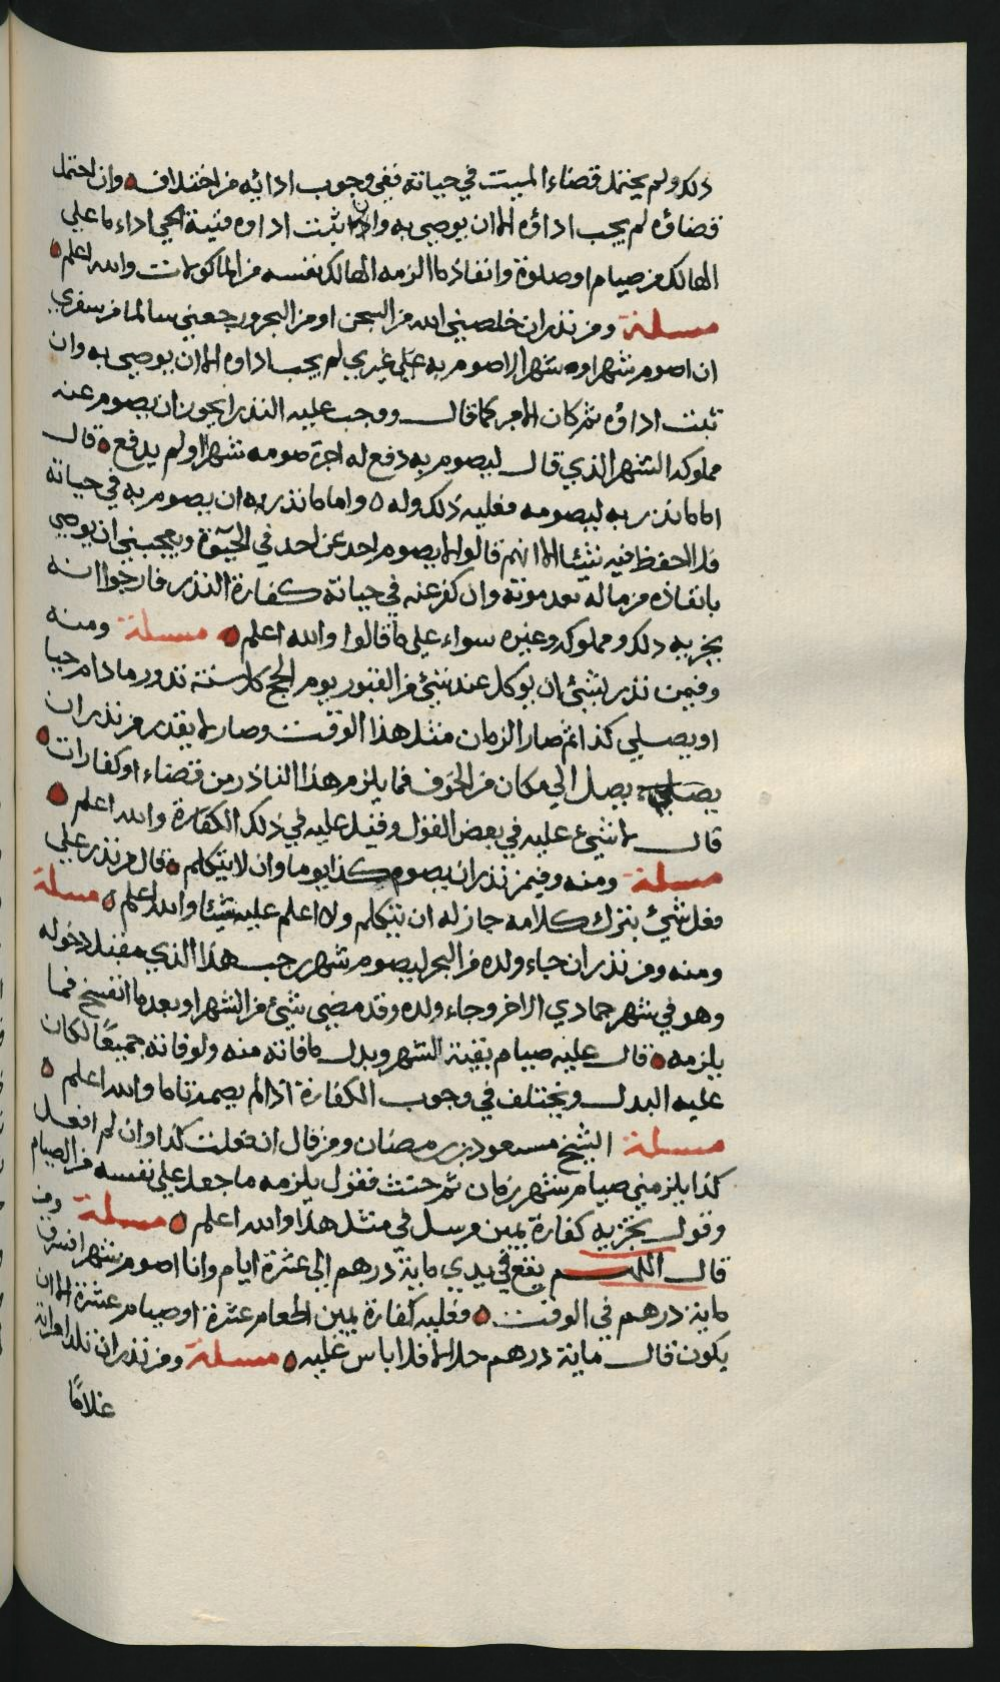 ذلك ولم يحتمل قضاء الميت في حياته ففي وجوب ادائه من اختلاف وان احتمل
قضاؤه لم يجب اداؤه الا ان يوصي به واذا ثبت اداوه فنية الحي اداء ما على
الهالك من صيام او صلوة وانفاذ ما الزمه الهالك نفسه من الماكولات والله اعلم
مسلة ومن نذر ان خلصني الله من السجن او من البحر ورجعني سالما من سفري
ان اصوم شهرا وه شهرا لاصوم به على غيري لم يجب اداوه الا ان يوصي به وان
ثبت اداؤه ثم كان الامر كما قال ووجب عليه النذر ايجوز ان يصوم عنه
مملوكه الشهر الذي قال ليصوم به دفع له اجرة صومه شهرا او لم يدفع قال
اما ما نذر به ليصومه فعليه ذلك وله واما ما نذر به ان يصوم به في حياته
فلا احفظ فيه شيئا الا انهم قالوا لا يصوم احد عن احد في الحيوة ويعجبني ان يوصي
بانفاذه من ماله بعد موته وان كفر عنه في حياته كفارة النذر فارجوا انه
يجزيه ذلك ومملوكه وغيره سواء على ما قالوا والله اعلم مسلة ومنه
وفيمن نذر بشئ ان يوكل عند شئ من القبور يوم الحج كل سنة تدور ما دام حيا
او يصلي كذا ثم صار الزمان مثل هذا الوقت وصار لا يقدر من نذر ان
يصلي يصل الي مكان من الخوف فما يلزم هذا الناذر من قضاء او كفارات
قال لا شئ عليه في بعض القول وقيل عليه في ذلك الكفارة والله اعلم
مسلة ومنه وفيمن نذر ان يصوم كذا يوما وان لا يتكلم قال من نذر على
فعل شئ بترك كلامه جاز له ان يتكلم ولا اعلم عليه شيئا والله اعلم مسلة
ومنه ومن نذر ان جاء ولده من البحر ليصوم شهر رجب هذا الذي مقبل دخوله
وهو في شهر جمادي الاخر وجاء ولده وقد مضى شئ من الشهر او بعد ما انفسخ فما
يلزمه قال عليه صيام بقية الشهر وبدل ما فاته منه ولو فاته جميعًا لكان
عليه البدل ويختلف في وجوب الكفارة اذا لم يصمه تاما والله اعلم
مسلة الشيخ مسعود بن رمضان ومن قال ان فعلت كذا وان لم افعل
كذا يلزمني صيام شهر زمان ثم حنث فقول يلزمه ما جعل على نفسه من الصيام
وقول يجزيه كفارة يمين مرسل في مثل هذا والله اعلم مسلة ومن
قال اللهم يقع في يدي ماية درهم الى عشرة ايام وانا اصوم شهرا فسرق
ماية درهم في الوقت فعليه كفارة يمين اطعام عشرة او صيام عشرة الا ان
يكون قال ماية درهم حلالا فلا باس عليه مسلة ومن نذر ان تلد امراته
غلامًا